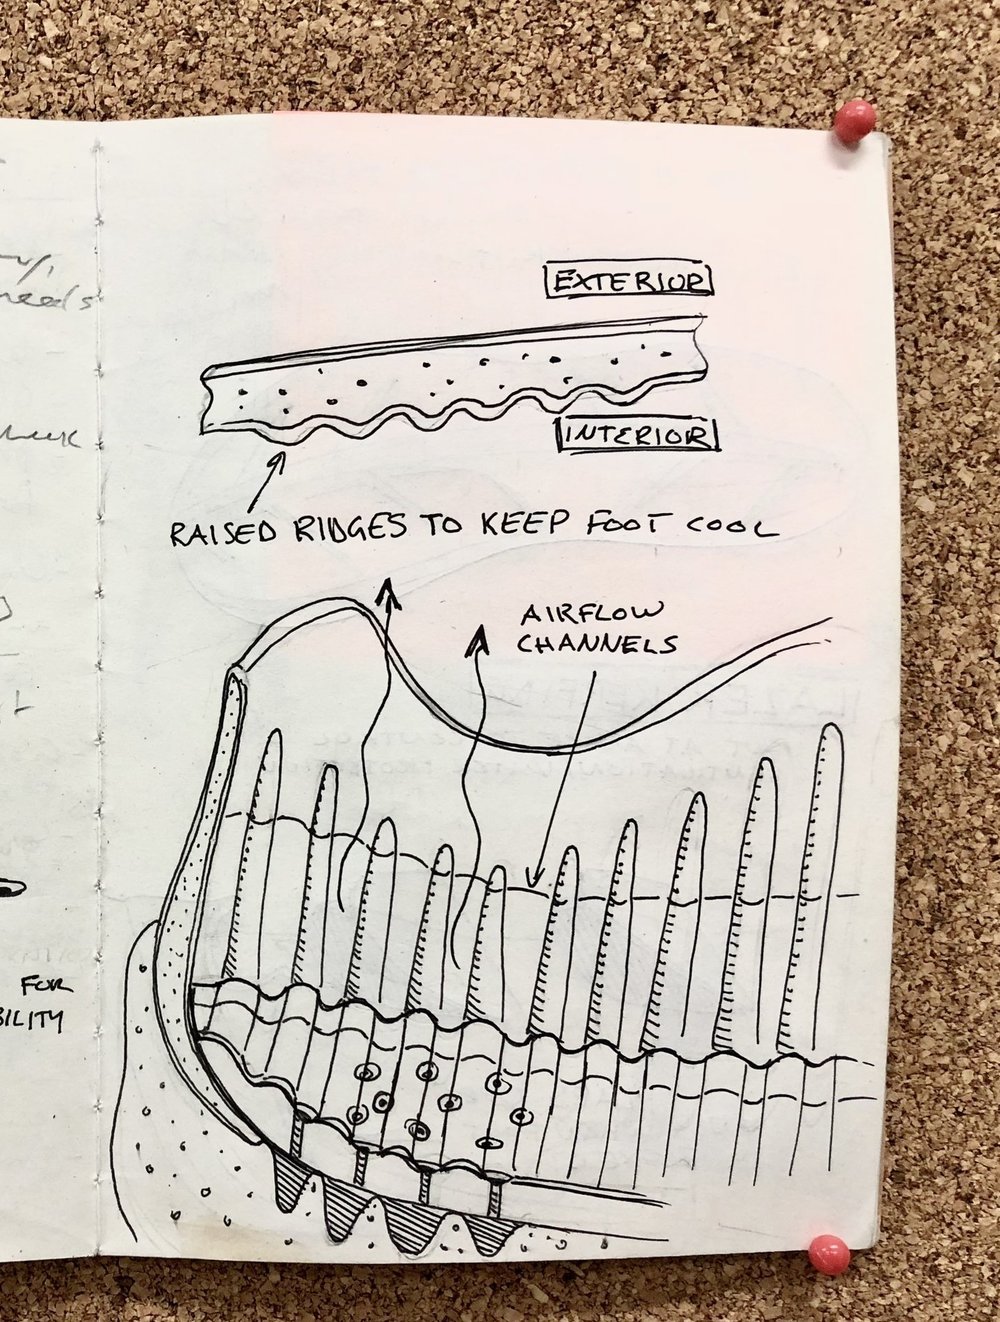 EXTERIOR
INTERIOR
RAISED RIDGES TO KEEP FOOT COOL
AIRFLOW
CHANNELS
needs
FOR